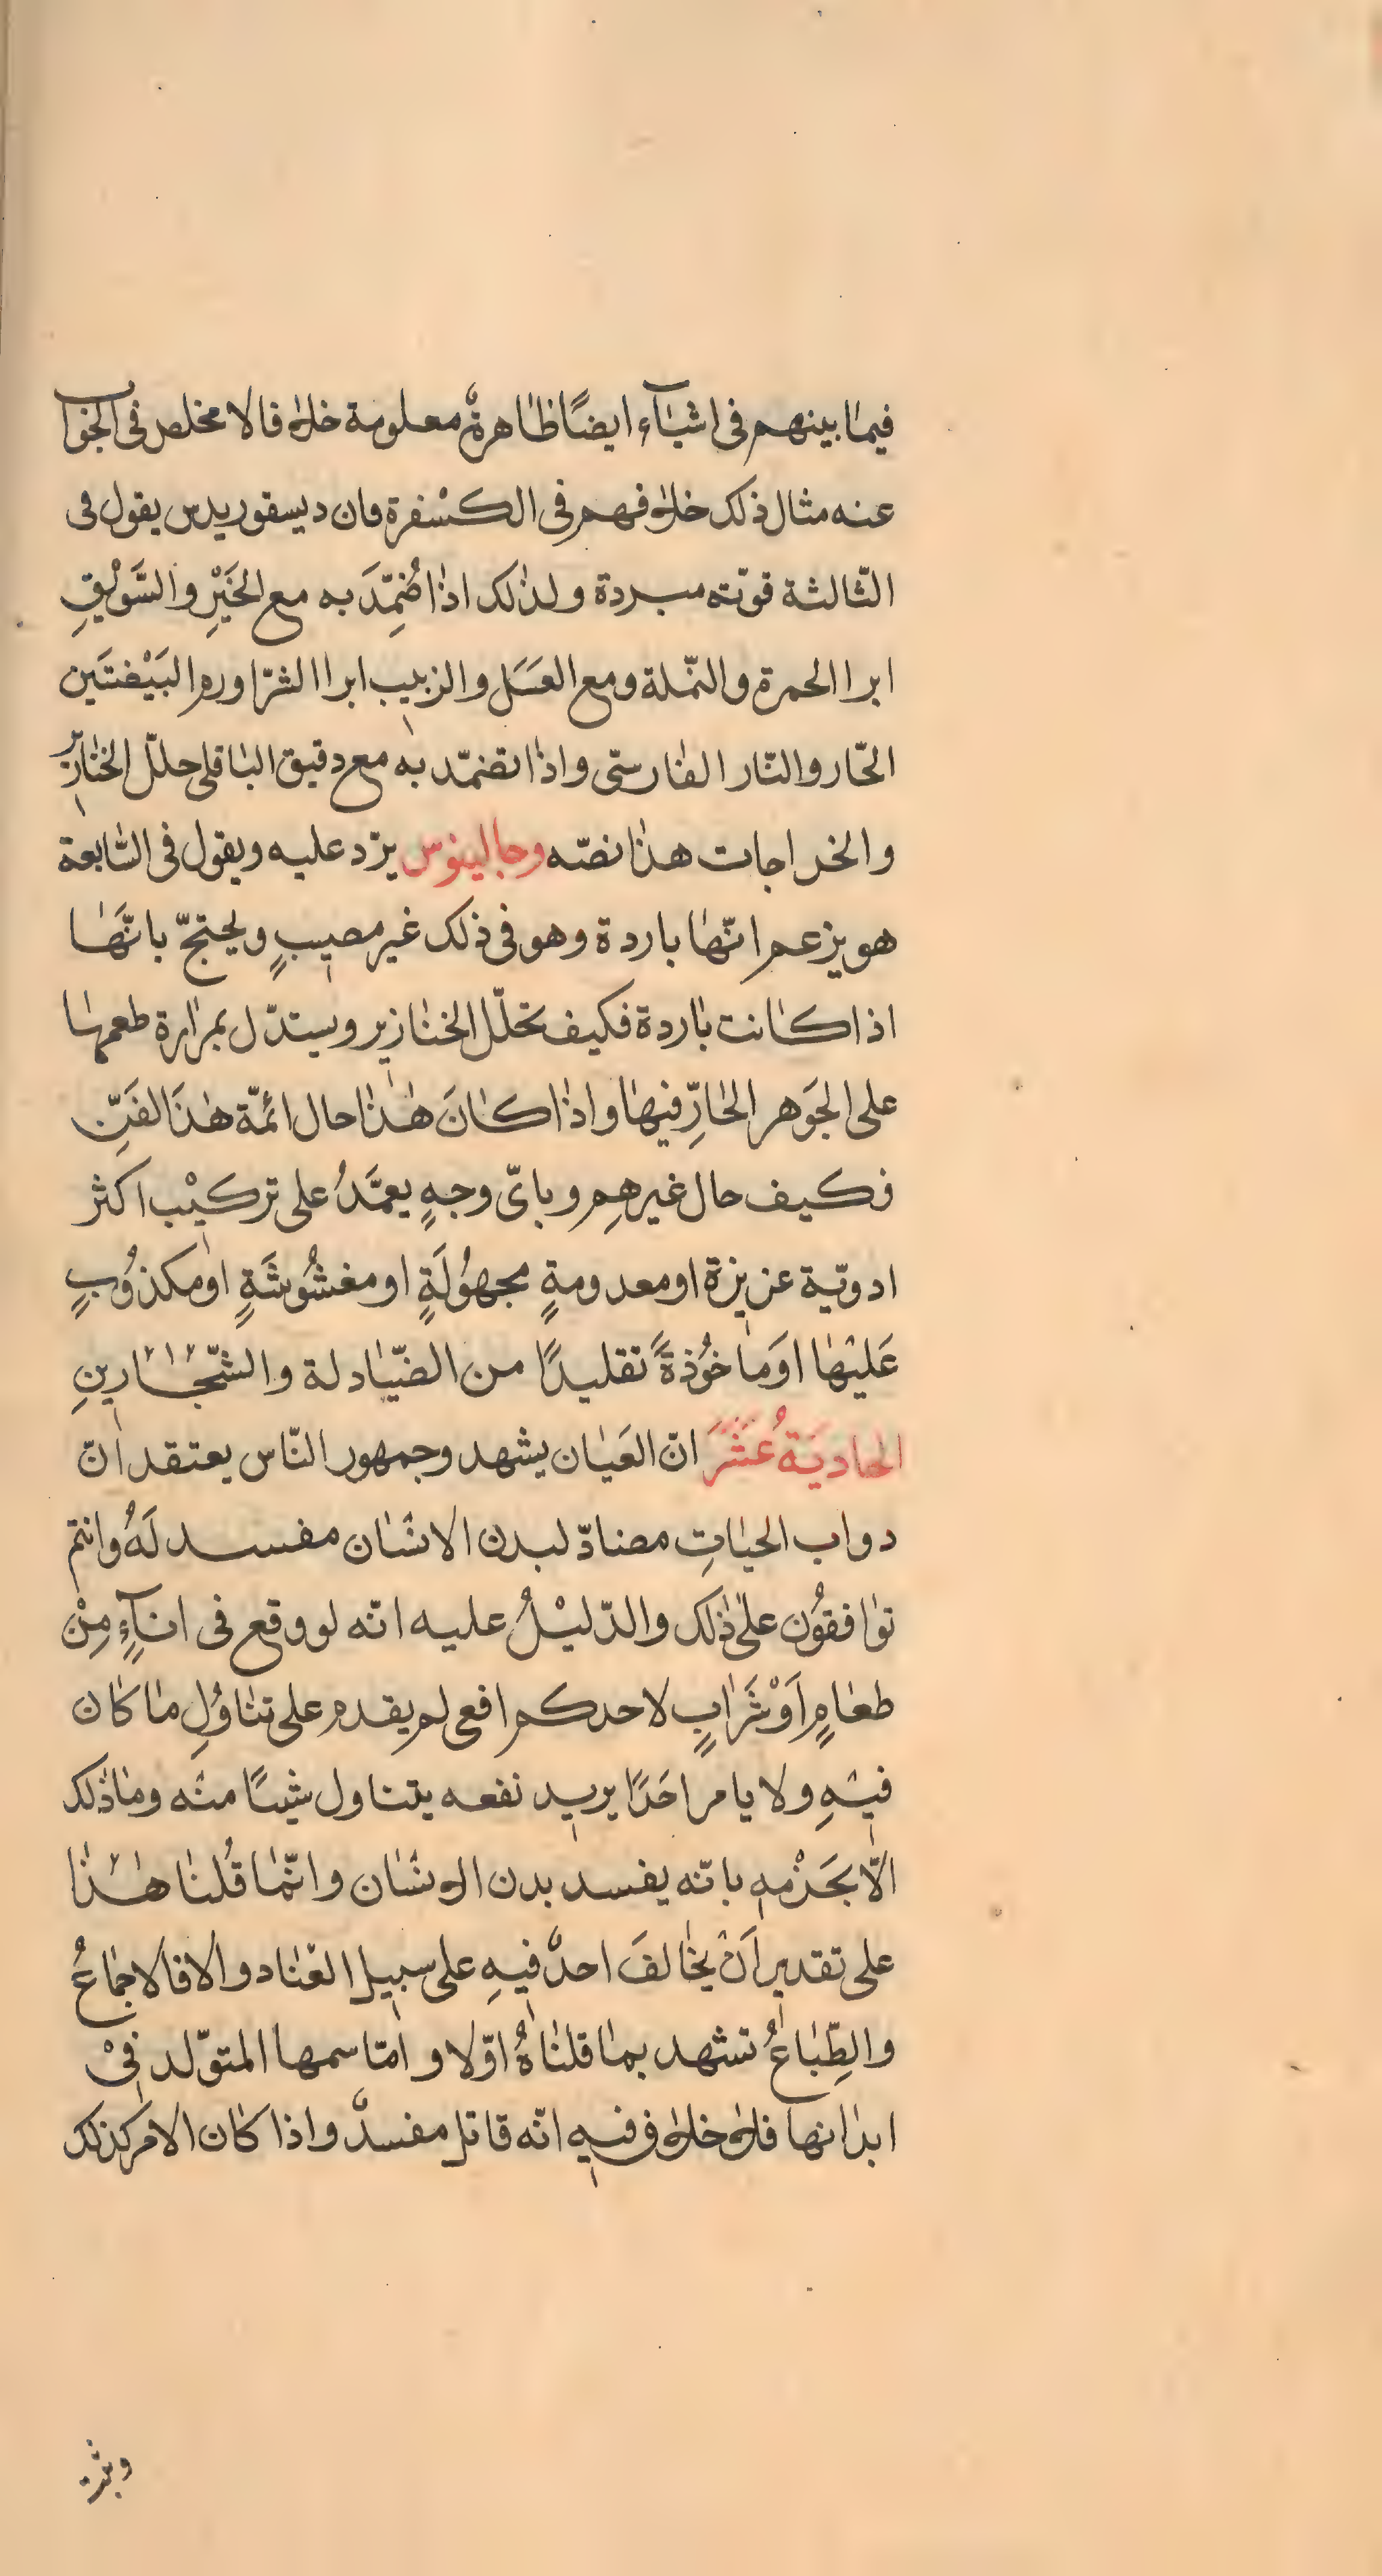 فيما بينهم فى اشيآء ايضًا ظاهرةٌ معلومة خلافا لا مخلص فى الجواب
عنه مثال ذلك خلافهم فى الكسْفرة فان ديسقوريدس يقول فى
الثّالثة قوّته مبردة ولذلك اذا ضُمِّدَ به مع الخَيْرِ والسَّوِيْقِ
ابرا الحمرة والنّملة ومع العَسَل والزبيب ابرا الشرّا ورم البَيْضتَين
الحّار والنّار الفارستى واذا تضمّد به مع دقيق الباقلى حلّل الخنازير
والخراجات هذا نصّه وجالينوس يرّد عليه ويقول فى السّابعة
هو يزعم انّها باردة وهو فى ذلك غير مصيبٍ ويحتجّ بانّهَا
اذا كانت باردة فكيف تحلّل الخنازير ويستدّل بمرارة طعمها
على الجَوهر الحارِّ فيها واذا كانَ هٰذا حال ائمّة هٰذَا الفَنِّ
فكيف حال غيرهِم وباىّ وجهٍ يعمَّدُ على تركيْب اكثر
ادويّة عزيزة او معدومةٍ مجهُولَةٍ او مغشُوشَةٍ او مكذوُبٍ
عَليْها اوَ ماخُوْذةً تقليدًا من الصّيادلة والشّجّارينِ
الحاديَةُ عَشَرَ انّ العَيان يشهد وجمهور النّاس يعتقد انّ
دواب الحيٰاتِ مضادّ لبدن الانسَان مفسد لَهُ وانتم
توافقوُن علىٰ ذلك والدّليْلُ عليه انّه لو وقع فى انآءٍ مِنْ
طعامٍ اَوْ شَرابٍ لاحدكم افعى لم يقدم على تناوُلِ ما كان
فيْهِ ولا يامر احَدًا يريد نفعه يتناول شيئًا منْه وما ذلك
الّا بجَزْمهِ بانّه يفسد بدن الانسَان وانّما قُلنا هٰذا
على تقدير اَنْ يخالفَ احدٌ فيهِ على سبيل العْناد والا فالاجماعُ
والطِّبَاعُ تشهد بما قلناهُ اوّلا وامّا سمها المتوّلد فِىْ
ابدانها فلا خلاف فيه انّه قاتل مفسدٌ واذا كان الامر كذلك